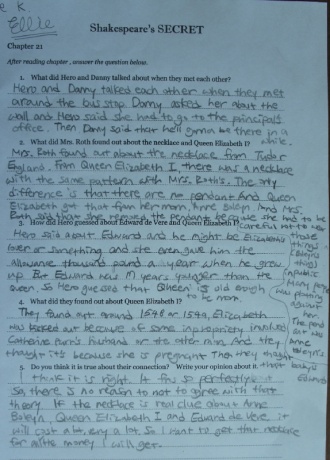 e K.
Ellie
Shakespeare's SECRET
Chapter 21
After reading chapter, answer the question below.
1. What did Hero and Danny talked about when they met each other?
Hero and Danny talked each other when they met
around the bus stop. Danny asked her about the
wall and Hero said she had to go to the principal's
office. Then Danny said that he'll gonna be there in a
while.
2. What did Mrs. Roth found out about the necklace and Queen Elizabeth I?
Mrs. Roth found out about the necklace from Tudor
England. From Queen Elizabeth I, there was a necklace
with the same pattern with Mrs. Roth's. The only
difference is that there are no pendant. And Queen
Elizabeth got that from her mom Anne Boleyn. And Mrs.
Roth said that she removed the pendant because she had to be
careful not to wear
3. How did Hero guessed about Edward de Vere and Queen Elizabeth I?
those
things
(Boleyn
things)
in public.
Many people
was
against
her.
The pend
ant was
Anne
Boleyn's
Hero said about Edward and he might be Elizabeth's
lover or something, and she even gave him the
allowance thousand pound a year when he grow
up. But Edward was 17 years younger than the
queen, so Hero guessed that Queen is old enough
to be mom.
4. What did they found out about Queen Elizabeth I?
They found out around 1548 or 1549, Elizabeth
was kicked out because of some impropriety involved
Catherine Parr's husband or the other man. And they
thought it's because she is pregnant. Then they thought
that baby's
Edward
5. Do you think it is true about their connection? Write your opinion about it.
I think it is right. It fits so perfectly
So, there is no reason to not to agree with that
theory. If the necklace is real clue about Anne
Boleyn, Queen Elizabeth I and Edward de Vere, it
will cost a lot, very a lot. So I want to get that necklace
for all the money I will get.